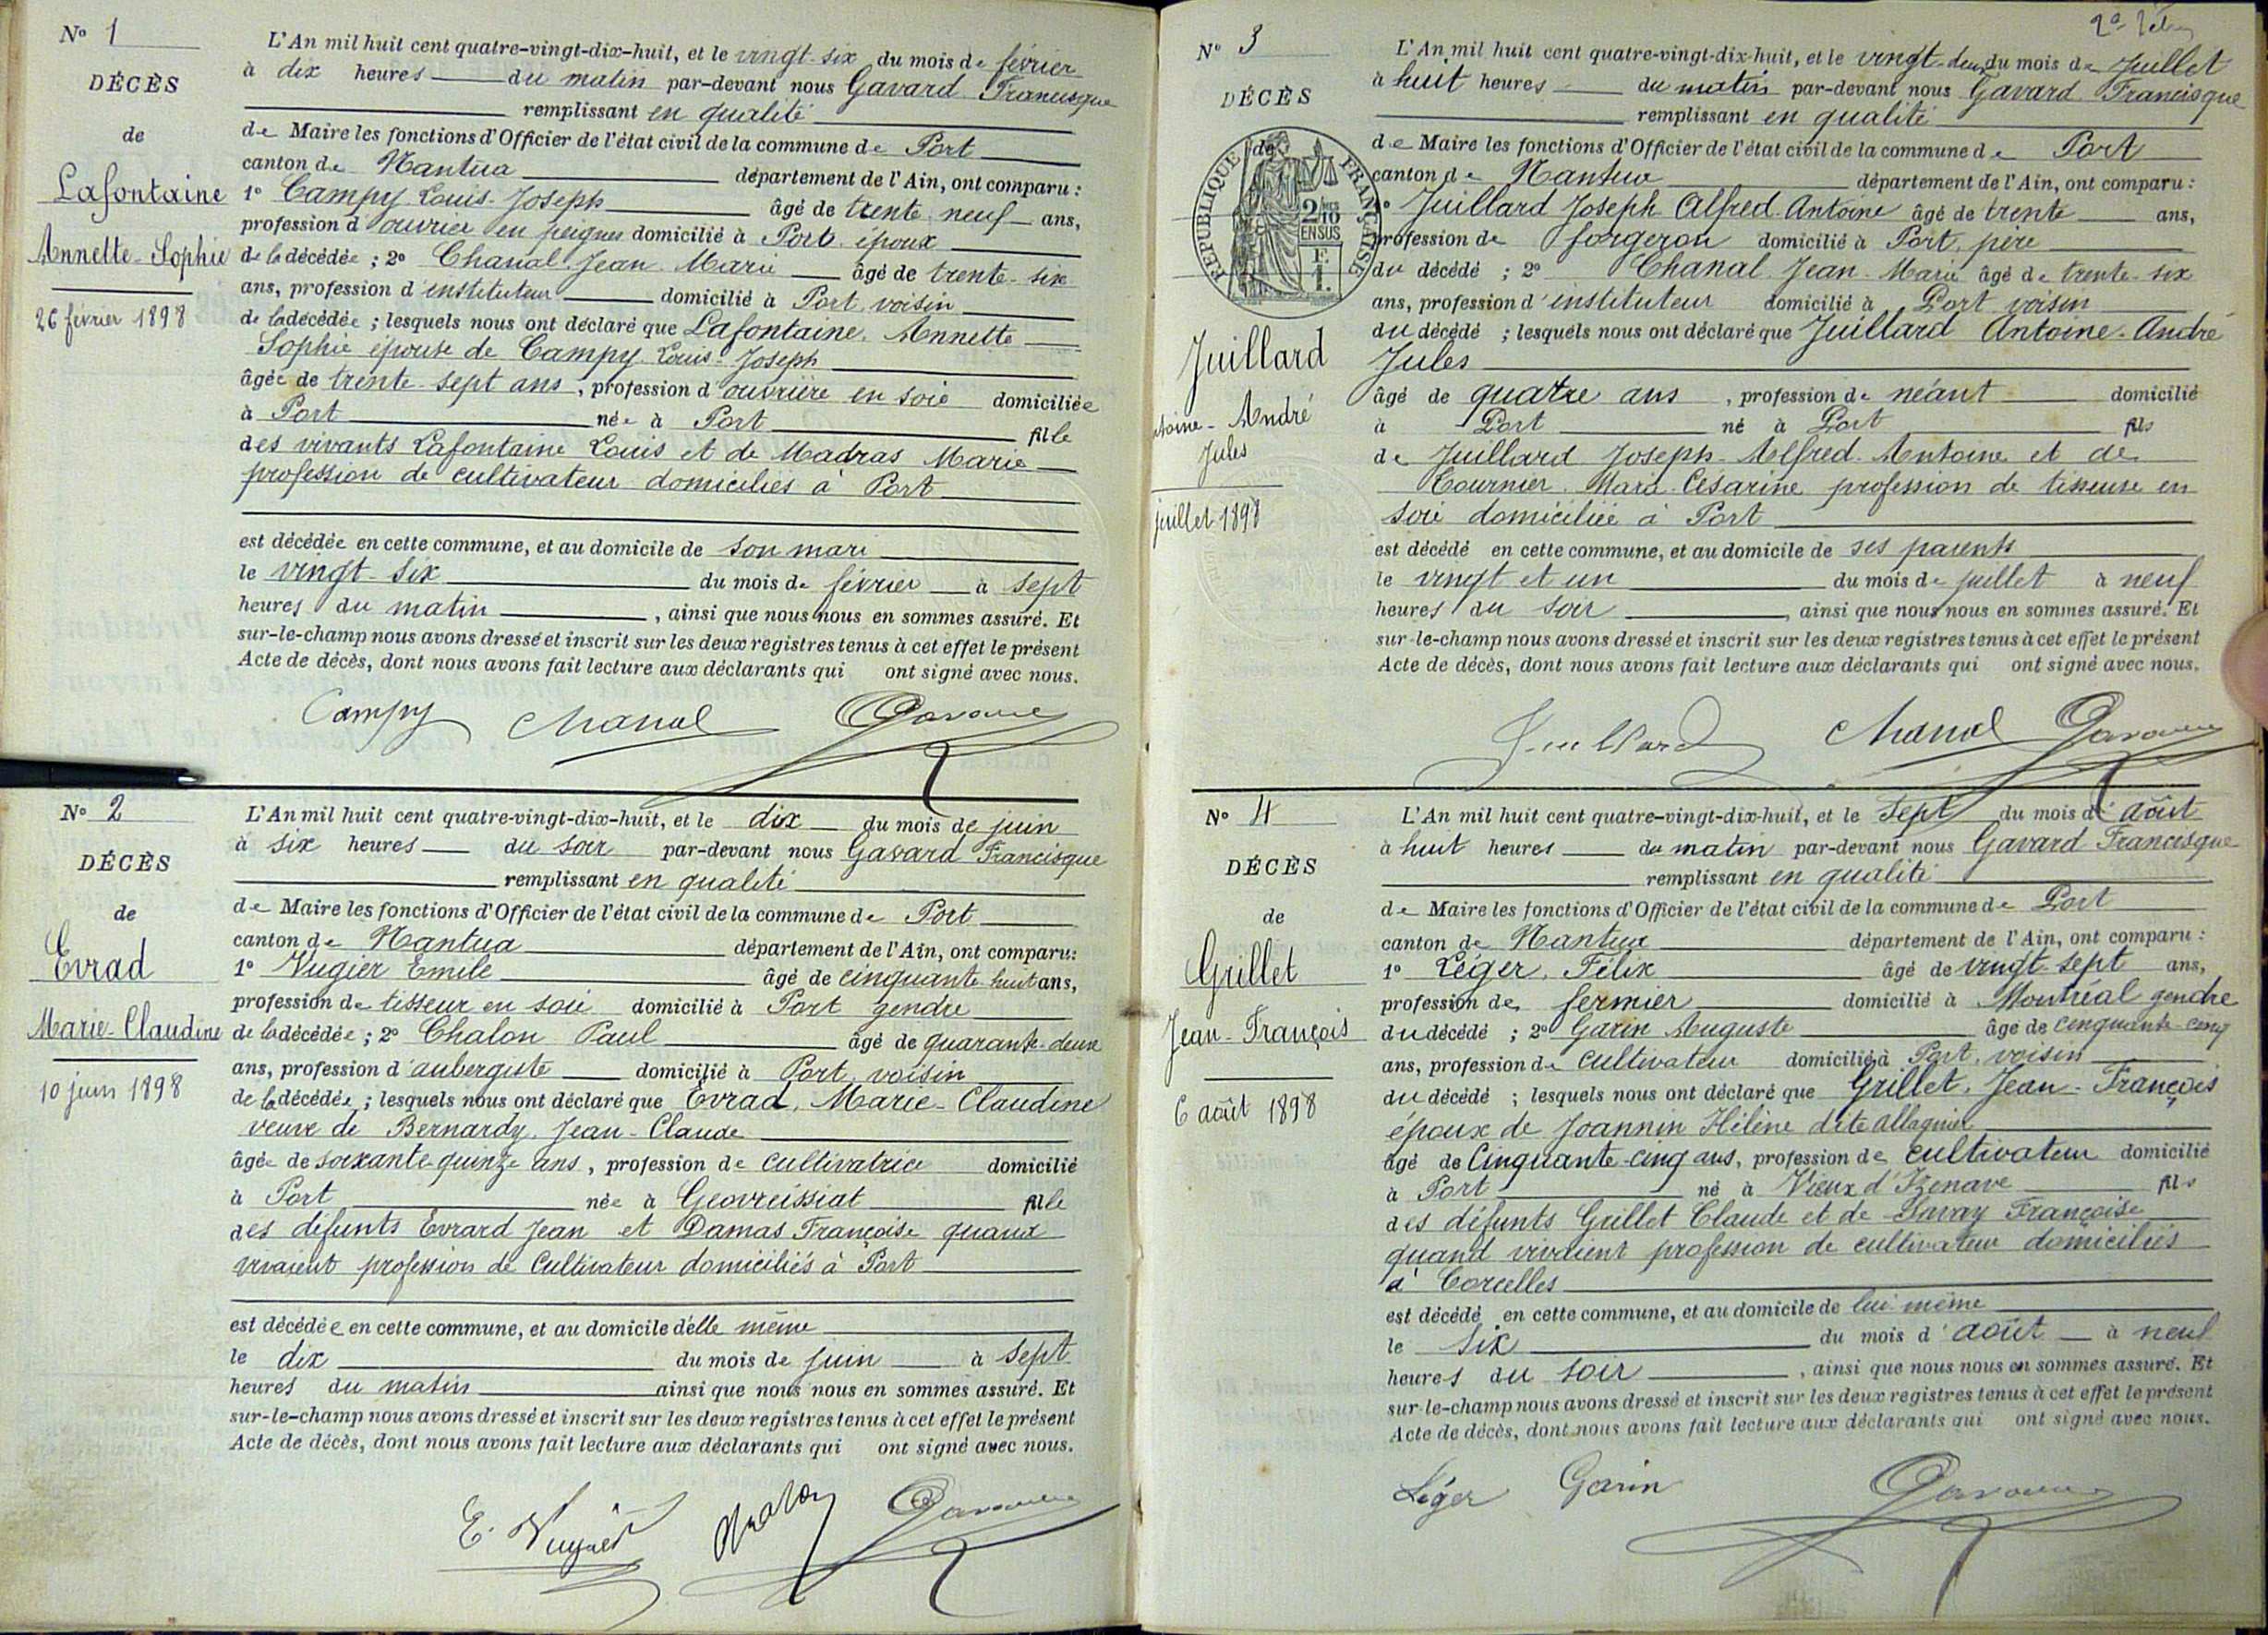 N° 1
DÉCÈS
de
Lafontaine
Annette-Sophie
26 février 1898
L'An mil huit cent quatre-vingt-dix-huit, et le vingt-six du mois de février
à dix heures du matin par-devant nous Gavard Francisque
remplissant en qualité
de Maire les fonctions d'Officier de l'état civil de la commune de Port
canton de Nantua département de l'Ain, ont comparu :
1° Campy Louis-Joseph âgé de trente-neuf ans,
profession d'ouvrier en peignes domicilié à Port époux
de la décédée ; 2° Chanal Jean Marie âgé de trente-six
ans, profession d'instituteur domicilié à Port voisin
de la décédée ; lesquels nous ont déclaré que Lafontaine Annette
Sophie épouse de Campy Louis-Joseph
âgée de trente-sept ans, profession d'ouvrière en soie domiciliée
à Port née à Port fille
des vivants Lafontaine Louis et de Madras Marie
profession de cultivateur domiciliés à Port
est décédée en cette commune, et au domicile de son mari
le vingt-six du mois de février à sept
heures du matin, ainsi que nous nous en sommes assuré. Et
sur-le-champ nous avons dressé et inscrit sur les deux registres tenus à cet effet le présent
Acte de décès, dont nous avons fait lecture aux déclarants qui ont signé avec nous.
Campy Chanal Gavard
N° 2
DÉCÈS
de
Evrad
Marie-Claudine
10 juin 1898
L'An mil huit cent quatre-vingt-dix-huit, et le dix du mois de juin
à six heures du soir par-devant nous Gavard Francisque
remplissant en qualité
de Maire les fonctions d'Officier de l'état civil de la commune de Port
canton de Nantua département de l'Ain, ont comparu :
1° Vugier Emile âgé de cinquante-huit ans,
profession de tisseur en soie domicilié à Port gendre
de la décédée ; 2° Chalon Paul âgé de quarante-deux
ans, profession d'aubergiste domicilié à Port voisin
de la décédée ; lesquels nous ont déclaré que Evrad, Marie-Claudine
veuve de Bernardy, Jean-Claude
âgée de soixante-quinze ans, profession de cultivatrice domicilié
à Port née à Géovreissiat fille
des défunts Evrard Jean et Damas Françoise quand
vivaient profession de Cultivateur domiciliés à Port
est décédée en cette commune, et au domicile d'elle même
le dix du mois de juin à sept
heures du matin ainsi que nous nous en sommes assuré. Et
sur-le-champ nous avons dressé et inscrit sur les deux registres tenus à cet effet le présent
Acte de décès, dont nous avons fait lecture aux déclarants qui ont signé avec nous.
E. Vugier Chalon Gavard
N° 3
DÉCÈS
de
RÉPUBLIQUE FRANÇAISE
2/10
EN SUS
F.
1.
Juillard
Antoine-André
Jules
juillet 1898
L'An mil huit cent quatre-vingt-dix-huit, et le vingt-deux du mois de Juillet
à huit heures du matin par-devant nous Gavard Francisque
remplissant en qualité
de Maire les fonctions d'Officier de l'état civil de la commune de Port
canton de Nantua département de l'Ain, ont comparu :
1° Juillard Joseph Alfred Antoine âgé de trente ans,
profession de forgeron domicilié à Port, père
du décédé ; 2° Chanal Jean-Marie âgé de trente-six
ans, profession d'instituteur domicilié à Port voisin
du décédé ; lesquels nous ont déclaré que Juillard Antoine-André
Jules
âgé de quatre ans, profession de néant domicilié
à Port né à Port fils
de Juillard Joseph-Alfred-Antoine et de
Tournier Césarine profession de tisseuse en
soie domiciliée à Port
est décédé en cette commune, et au domicile de ses parents
le vingt et un du mois de juillet à neuf
heures du soir, ainsi que nous nous en sommes assuré. Et
sur-le-champ nous avons dressé et inscrit sur les deux registres tenus à cet effet le présent
Acte de décès, dont nous avons fait lecture aux déclarants qui ont signé avec nous.
Juillard Chanal Gavard
N° 4
DÉCÈS
de
Grillet
Jean-François
6 août 1898
L'An mil huit cent quatre-vingt-dix-huit, et le Sept du mois d'août
à huit heures du matin par-devant nous Gavard Francisque
remplissant en qualité
de Maire les fonctions d'Officier de l'état civil de la commune de Port
canton de Nantua département de l'Ain, ont comparu :
1° Léger, Félix âgé de vingt-sept ans,
profession de fermier domicilié à Montréal gendre
du décédé ; 2° Garin Auguste âgé de cinquante-cinq
ans, profession de Cultivateur domicilié à Port, voisin
du décédé ; lesquels nous ont déclaré que Grillet, Jean-François
époux de Joannin Hélène dite
âgé de Cinquante-cinq ans, profession de cultivateur domicilié
à Port né à Vieux d'Izenave fils
des défunts Grillet Claude et de Savay Françoise
quand vivaient profession de cultivateur domiciliés
à Corcelles
est décédé en cette commune, et au domicile de lui même
le six du mois d'août à neuf
heures du soir, ainsi que nous nous en sommes assuré. Et
sur-le-champ nous avons dressé et inscrit sur les deux registres tenus à cet effet le présent
Acte de décès, dont nous avons fait lecture aux déclarants qui ont signé avec nous.
Léger Garin Gavard